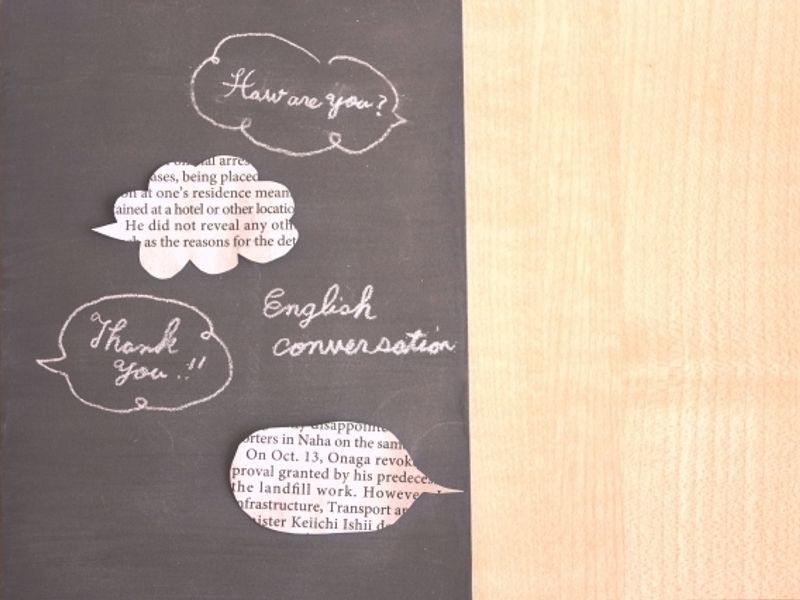 How are you?
al arres
ases, being placed
on at one's residence mean
ained at a hotel or other locatio
He did not reveal any oth
as the reasons for the det
English
conversation
Thank
You !!
disappointe
orters in Naha on the sam
On Oct. 13, Onaga revok
proval granted by his predeces
the landfill work. Howeve
nfrastructure, Transport an
nister Keiichi Ishii d